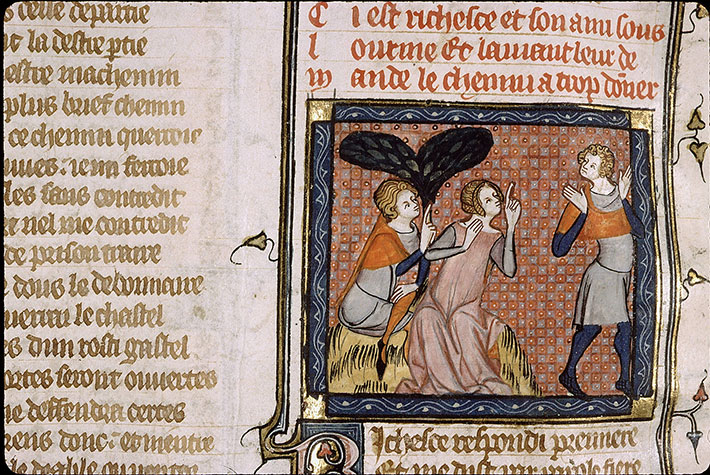 s celle departie
it la destre ptie
estre machemin
plus brief chemin
ce chemin queroie
uues: iem feroie
les sans contredit
et nel me contredit
de prison traire
dous le debonnaire
uerrai le chastel
es dun rosti gastel
ortes seront ouuertes
ne deffendra certes
iens donc: et mentre
C i est richesce et son ami sous
l ourme Et lamant leur de
m ande le chemin a trop doner
Richesce respondi premiere
Et me dist